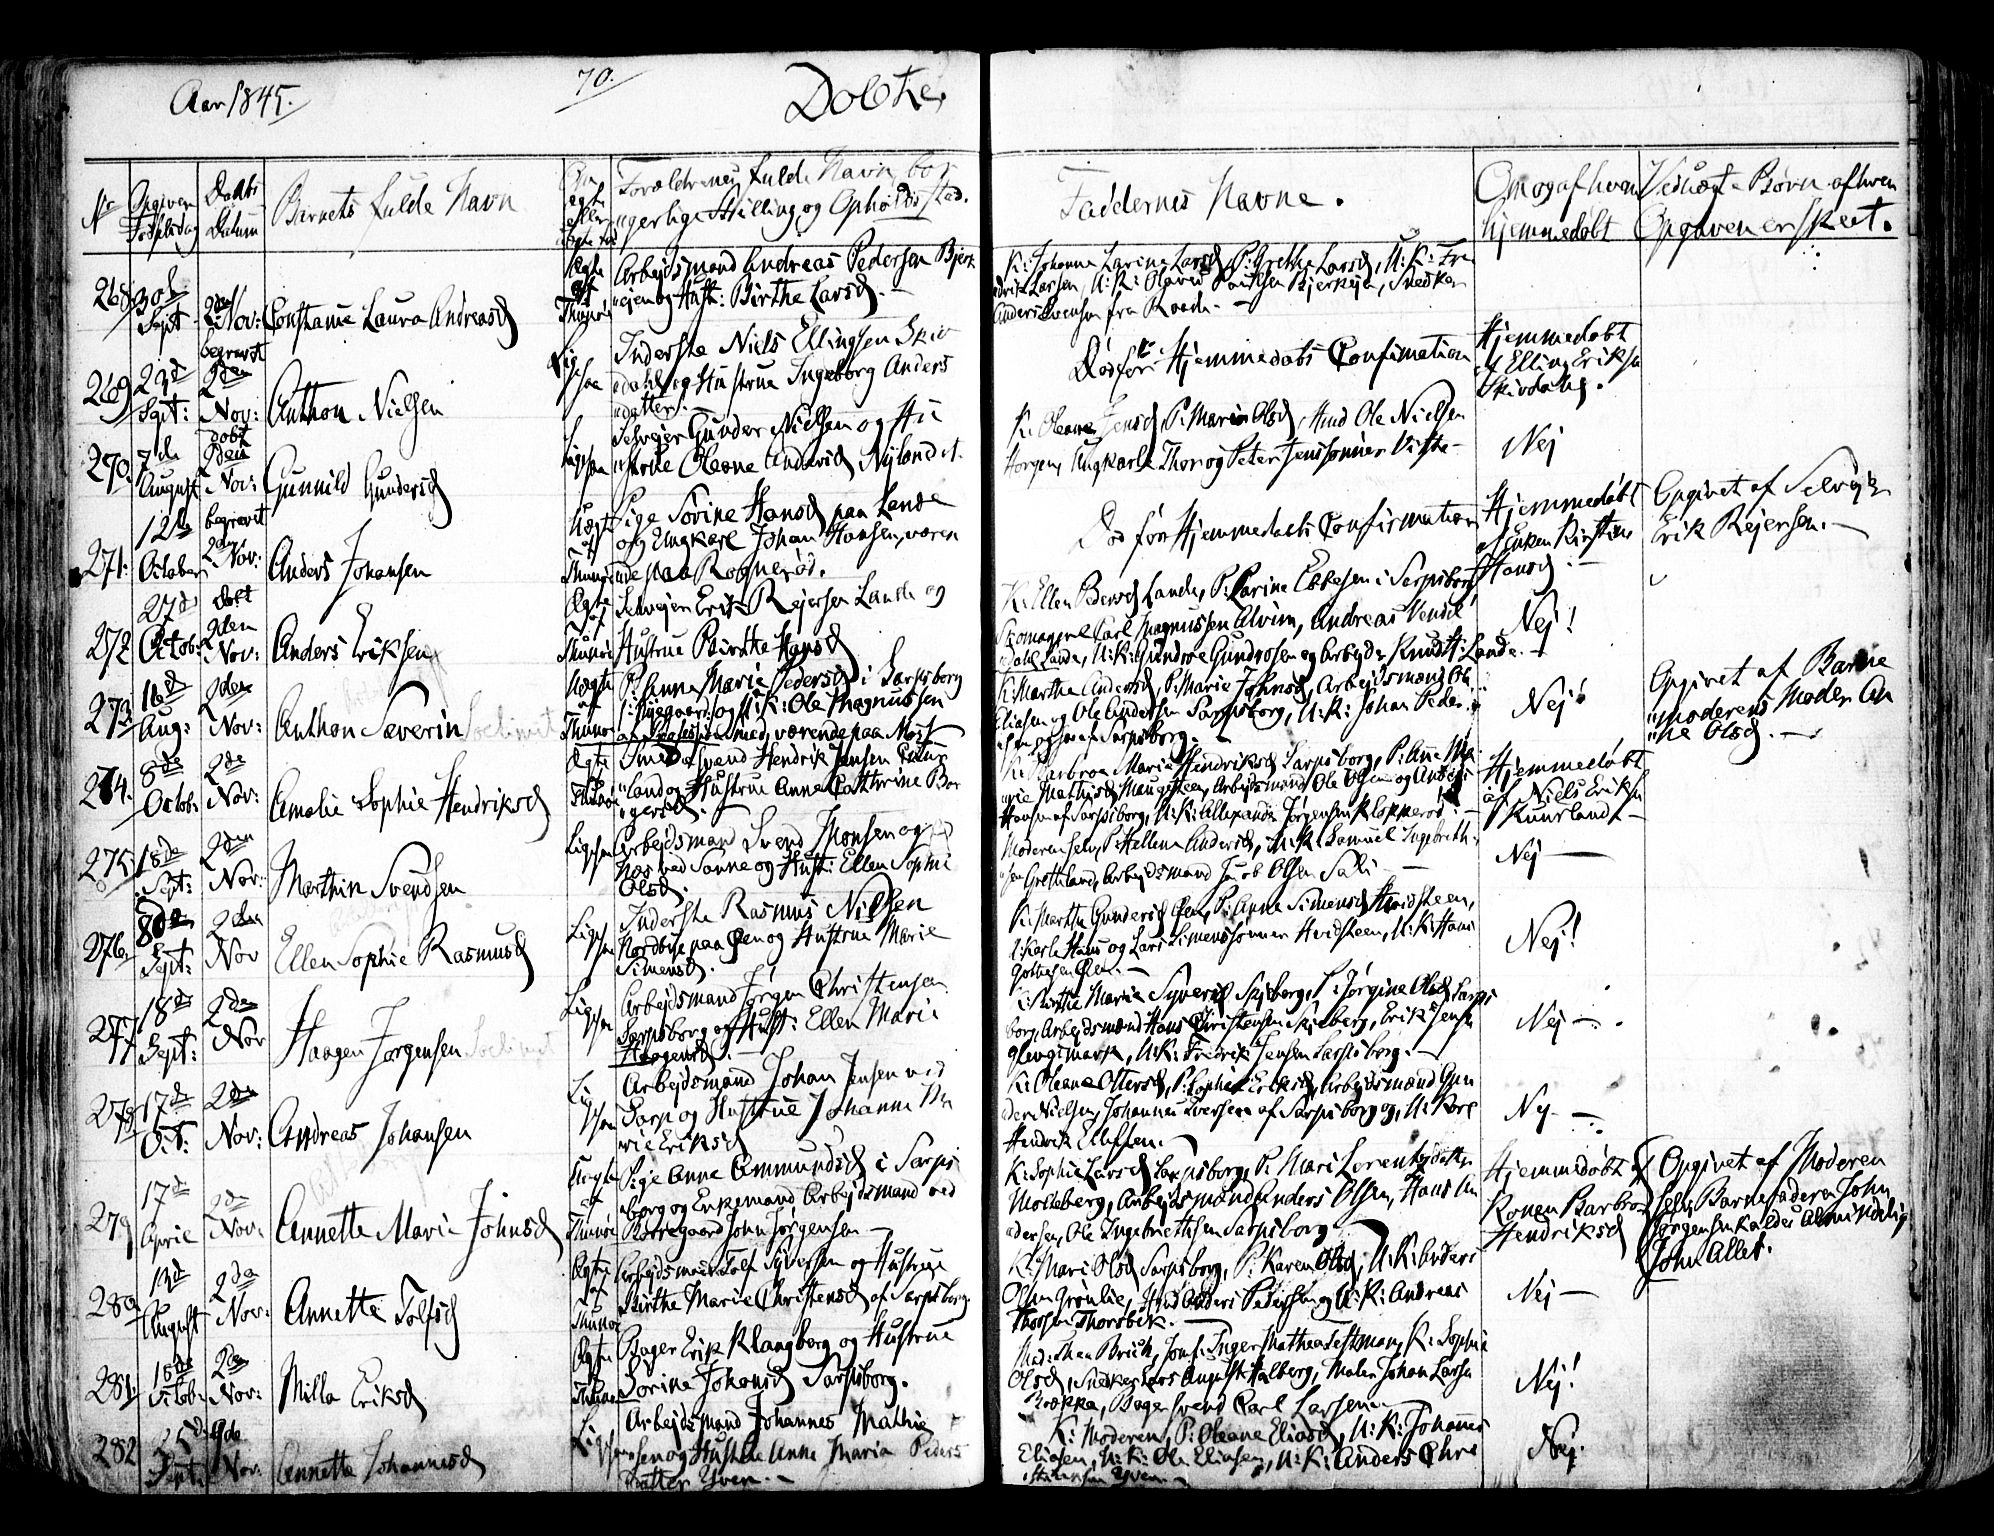 Aar 1845.
70.
Døbte.
No
Opgiven Fødselsdag
Daabs Datum
Barnets fulde Navn
Forældrenes fulde Navn, bor
gerlige Stilling og Opholdssted.
Faddernes Navne.
Om og af hvem
hjemmedøbt
Uægte Børn af hvem
Opgaven er skeet.
268
30te Sept
2den Nov:
Constance Laura Andreasd
Ægte
Arbejdsmand Andreas Pedersen Bjerk
eien og Hust: Birthe Larsd. —
K: Johanne Larine Larsd, P: Grethe Larsd, U: K: Fre
drik Larssen, U: K: Olavus Poulsen Bjerkeien, Snedker
Anders Svensen fra Raade. —
269
23de Sept:
begravet 2den Nov:
Anthon Nielsen
Ligesaa
Inderste Niels Ellingsen Skiv
dahl og Hustrue Ingeborg Anders
datter.
Død før Hjemmedaabs Confirmation
Hjemmedøbt
af Elling Eriksen
Skivdahl.
270
7de August
døbt 2den Nov:
Gunnild Gundersd
Ligesaa
Selveier Gunder Nielsen og Hu
strue Oleane Andersd Nyland
K: Oleane Jensd, P: Maria Olsd, Hmd Ole Nielsen
Horgen, Ungkarle Thor og Peter Jenssønner Viste —
Nej
271.
12te October
begravet 2den Nov:
Anders Johansen
Uægte
Pige Sørine Hansd paa Lande
og Ungkarl Johan Hansen, væren
de paa Rognerød.
Død før Hjemmedaabs Confirmation
Hjemmedøbt
af Enken Kirstine
Hansd. —
Opgivet af Selvejer
Erik Rejersen. —
272
27de Octob:
døbt 2den Nov:
Anders Eriksen
Ægte
Selvejer Erik Rejersen Lande og
Hustrue Birthe Hansd
K: Ellen Pedersd Lande, P: Karine Ebbesen i Sarpsborg
Skomager Carl Magnussen Alvim, Andreas Vendel
dahl Lande, U: K: Gundroe Gundrosen og Arbejds Knud H: Lande. —
Nej!
273
16de Aug:
2den Nov:
Anthon Severin
Uægte
P: Anna Marie Pedersd i Sarpsborg
og U: K: Ole Magnussen
værende paa Moss
K: Marthe Andersd, P: Marie Johnsd, Arbejdsmænd Ole
Eliasen og Ole Andersen Sarpsborg, U: K: Johan Peder
Sarpsborg. —
Nej!
Opgivet af Barne
moderens Moder An
ne Olsd. —
274.
8de Octob:
2de Nov:
Amalie Sophie Hendriksd
Ægte
Smedsvend Hendrik Jensen
land og Hustrue Anne Cathrine Bør
gersd.
K: Barbroe Marie Hendriksd, Sarpsborg, P: Anne Ma
rie Mathisd Haugsteen, Arbejdsmænd Ole Olsen og Anders
Hansen af Sarpsborg, U: K: Allexander Jørgensen Klopperød. —
Hjemmedøbt
af Niels Eriksen
Kuurland —
275
18de Sept:
2den Nov:
Marthin Svendsen
Ligesaa
Arbejdsmand Svend Monsen og
ved Sanne og Hust: Ellen Sophie
Olsd.
Moderen selv, P: Hellene Andersd, U: K: Samuel Ingebreth
sen Grethland, Arbejdsmand Jacob Olsen Sali —
Nej —
276
8de Sept:
2den Nov
Ellen Sophie Rasmusd
Ligesaa
Inderste Rasmus Nielsen
Nordbye paa Øen og Hustrue Marie
Simensd.
K: Marthe Gundersd Øen, P: Anne Simensd Hvidsteen,
U: Karle Hans og Lars Simenssønner Hvidsteen, U: K: Hans
Øen. —
Nej!
277
18de Sept:
2den Nov
Haagen Jørgensen
Ligesaa
Arbejdsmand Jørgen Christensen
Sarpsborg og Hust: Ellen Marie
Haagensd. —
K: Birthe Marie Syversd Skjeberg, P: Jørgine Olsd Sarps
borg, Arbejdsmænd Hans Christensen Skjeberg, Erik Jensen
U: K: Fredrik Jensen Sarpsborg. —
Nej —
278
17de Oct:
2den Nov:
Andreas Johansen
Ligesaa
Arbejdsmand Johan Jensen ved
Sarp og Hustrue Johanne Ma
rie Eriksd
K: Oleane Ottersd, P: Sophie Eriksd, Arbejdsmænd Gun
der Nielsen, Johannes Iversen af Sarpsborg og U: Karl
Hendrik Ellefsen. —
Nej —
279
17de Aprie
2de Nov:
Annette Marie Johnsd
Uægte
Pige Anne Ammundsd i Sarps
borg og Enkemand Arbejdsmand ved
Borregaard John Jørgensen —
K: Sophie Larsd Sarpsborg, P: Mari Lorentzdatter
Molteberg, Arbejdsmænd Anders Olsen, Hans An
dersen, Ole Ingebrethsen Sarpsborg
Hjemmedøbt af
Konen Barbroe
Hendriksd
Opgivet af Moderen
selv, Barnefaderen John
Jørgensen kaldes Almindelig
John Allet.
280
13de August
2de Nov:
Annette Tolfsd
Ægte
Arbejdsmand Tolf Syversen og Hustrue
Birthe Marie Christensd af Sarpsborg.
K: Mari Olsd Sarpsborg, P: Karen Olsd, U: K: Anders
Olsen Grønlie, Hmd Anders Pedersen og U: K: Andreas
Thorsen Thorsbek. —
Nej —
281
15de Octob:
2den Nov:
Milla Eriksd
Ægte
Bager Erik Klangberg og Hustrue
Sørine Johansd Sarpsborg.
Mad: Brich, Jomf: Inger Mathea Festmann, K: Sophie
Olsd, Snedker Lars August Halberg, Maler Johan Larsen
Brække, Bager Svend Carl Larsen
Nej!
282
25de Sept:
2de Nov:
Annette Johannesd
Ligesaa
Arbejdsmand Johannes Mathie
sen og Hustrue Anne Maria Peders
datter Yven. —
K: Moderen, P: Oleane Eliasd, U: K: Johannes
Eliasen, U: K: Ole Eliasen, U: K: Anders Chri
stensen Yven —
Nej.